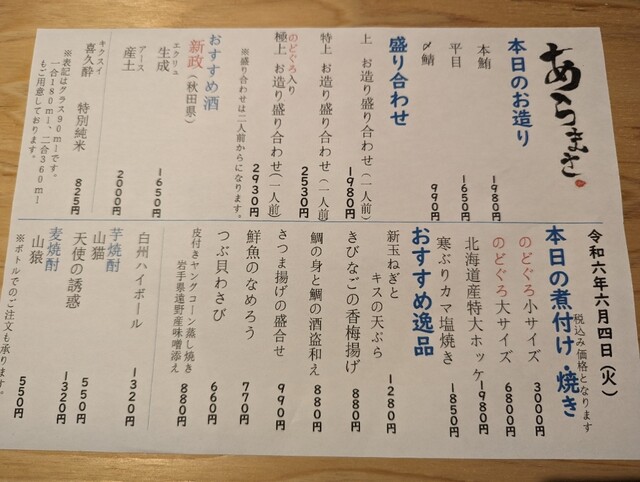 あらまさ
本日のお造り
本鮪 1980円
平目 1650円
〆鯖 990円
盛り合わせ
上 お造り盛り合わせ(一人前) 1980円
特上 お造り盛り合わせ(一人前) 2530円
のどぐろ入り
極上 お造り盛り合わせ(一人前) 2930円
※盛り合わせは二人前からになります。
おすすめ酒
新政(秋田県)
エクリュ
生成 1650円
アース
産土 2000円
キクスイ
喜久酔 特別純米 825円
※表記はグラス90mlです。
一合180ml、二合360ml
もご用意しております。
令和六年六月四日(火)
税込み価格となります
本日の煮付け・焼き
のどぐろ小サイズ 3000円
のどぐろ大サイズ 6800円
北海道産特大ホッケ 1980円
寒ぶりカマ塩焼き 1850円
おすすめ逸品
新玉ねぎと
キスの天ぷら 1280円
きびなごの香梅揚げ 880円
鯛の身と鯛の酒盗和え 880円
さつま揚げの盛合せ 990円
鮮魚のなめろう 770円
つぶ貝わさび 660円
皮付きヤングコーン蒸し焼き
岩手県遠野産味噌添え 880円
白州ハイボール 1320円
芋焼酎
山猫 550円
天使の誘惑 1320円
麦焼酎
山猿 550円
※ボトルでのご注文も承ります。